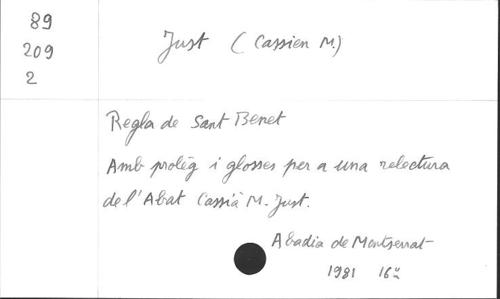 89
209
2
Just (Cassien M.)
Regla de Sant Benet
Amb prolèg i glosses per a una relectura
de l'Abat Cassià M. Just.
Abadia de Montserrat
1981 16º